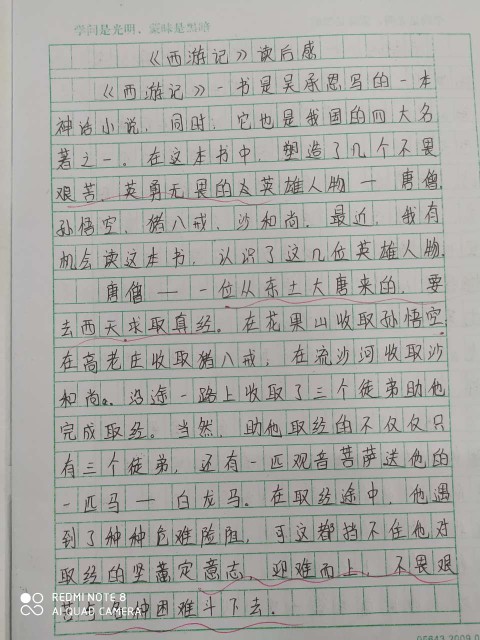 学问是光明，蒙昧是黑暗
《西游记》读后感
《西游记》一书是吴承恩写的一本
神话小说，同时，它也是我国的四大名
著之一。在这本书中，塑造了几个不畏
艰苦，英勇无畏的英雄人物一唐僧，
孙悟空，猪八戒，沙和尚。最近，我有
机会读这本书，认识了这几位英雄人物，
唐僧——一位从东土大唐来的，要
去西天求取真经。在花果山收取孙悟空，
在高老庄收取猪八戒，在流沙河收取沙
和尚。沿途一路上收取了三个徒弟助他
完成取经。当然，助他取经的不仅仅只
有三个徒弟，还有一匹观音菩萨送他的
一匹马—白龙马。在取经途中，他遇
到了种种危难险阻，可这都挡不住他对
取经的坚定意志，迎难而上，不畏艰
苦与各种困难斗下去。
REDMI NOTE 8
AI QUAD CAMERA